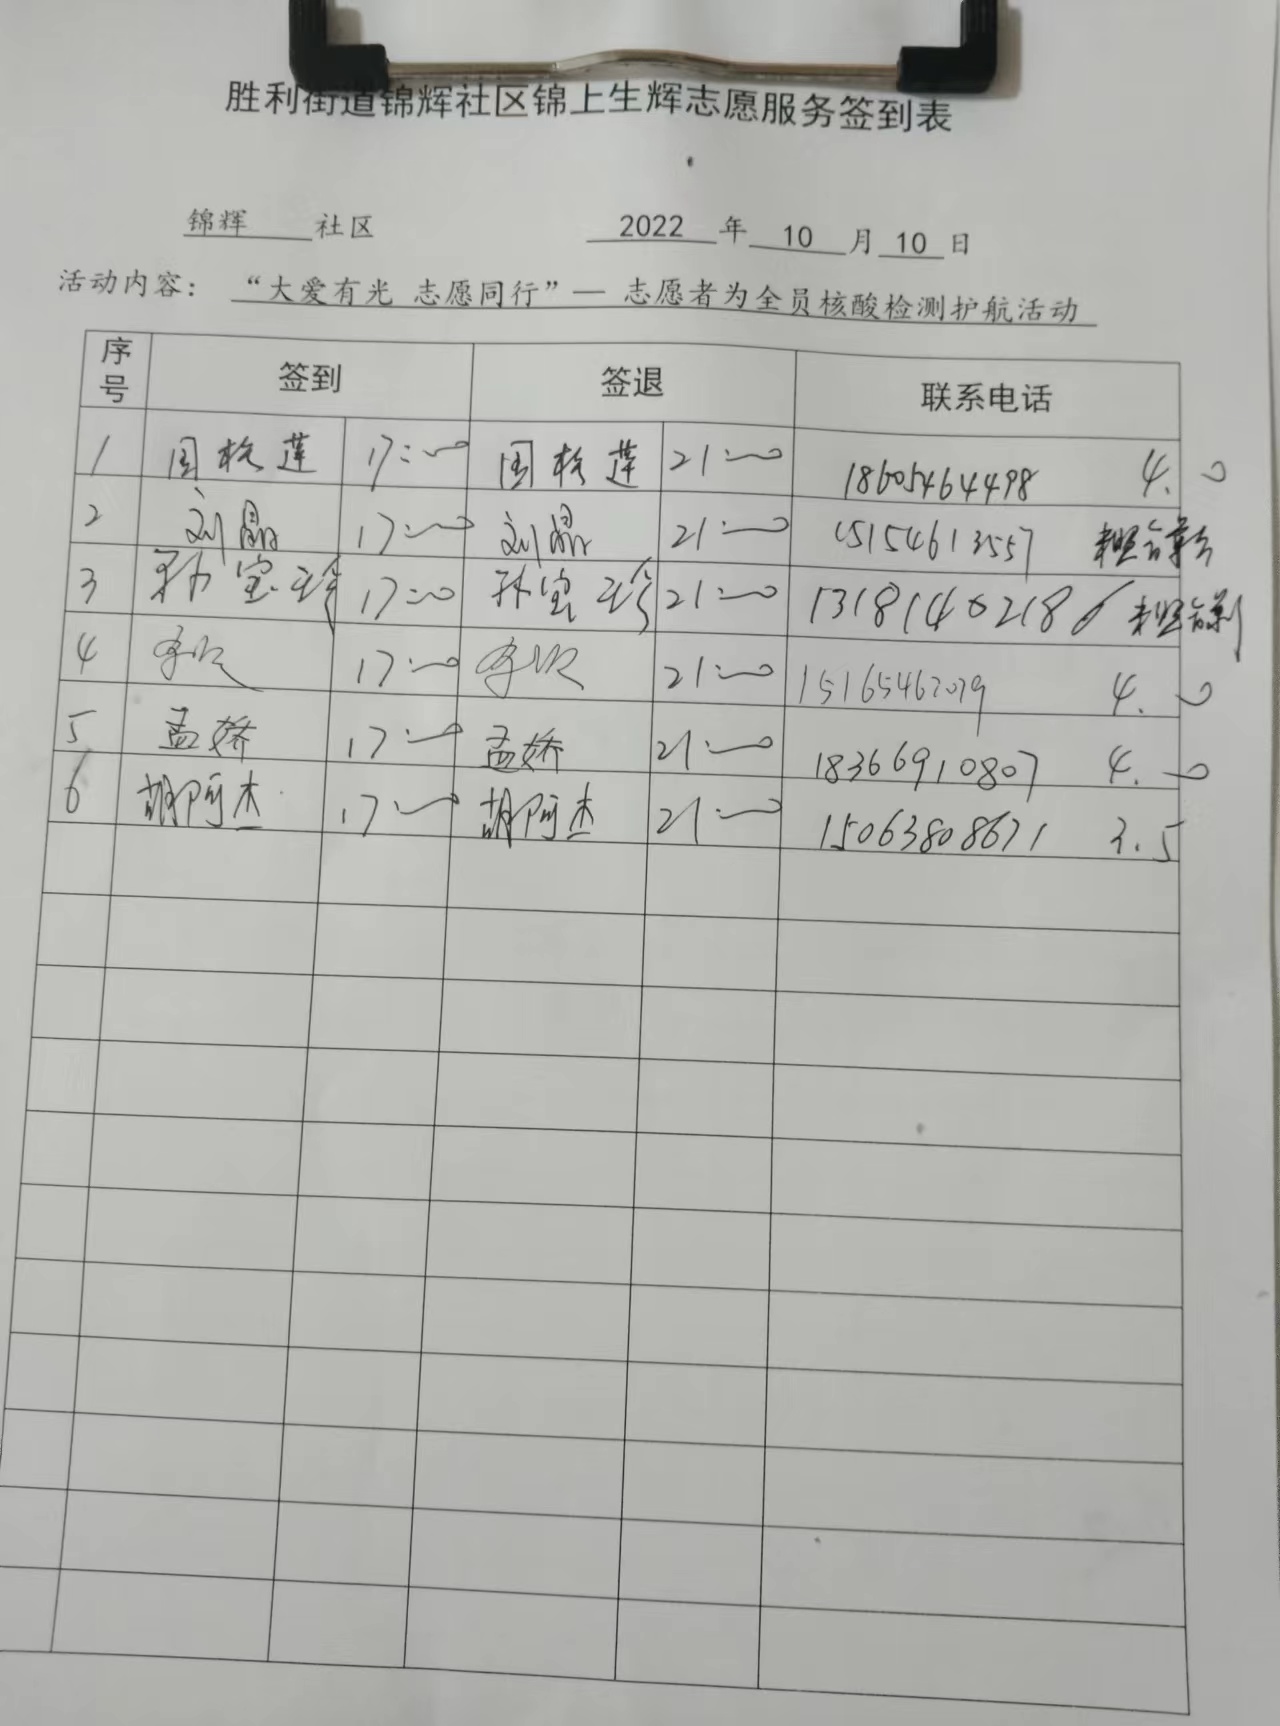 胜利街道锦辉社区锦上生辉志愿服务签到表
锦辉 社区 2022 年 10 月 10 日
活动内容： “大爱有光 志愿同行”— 志愿者为全员核酸检测护航活动
序号 签到 签退 联系电话
1 17:00 21:00 18605464498 4.0
2 刘晶 17:00 刘晶 21:00 15154613557
3 孙宝玲 17:00 孙宝玲 21:00 13181402186
4 17:00 21:00 15165467079 4.0
5 孟娇 17:00 孟娇 21:00 18366910807 4.0
6 胡阿杰 17:00 胡阿杰 21:00 15063808671 3.5